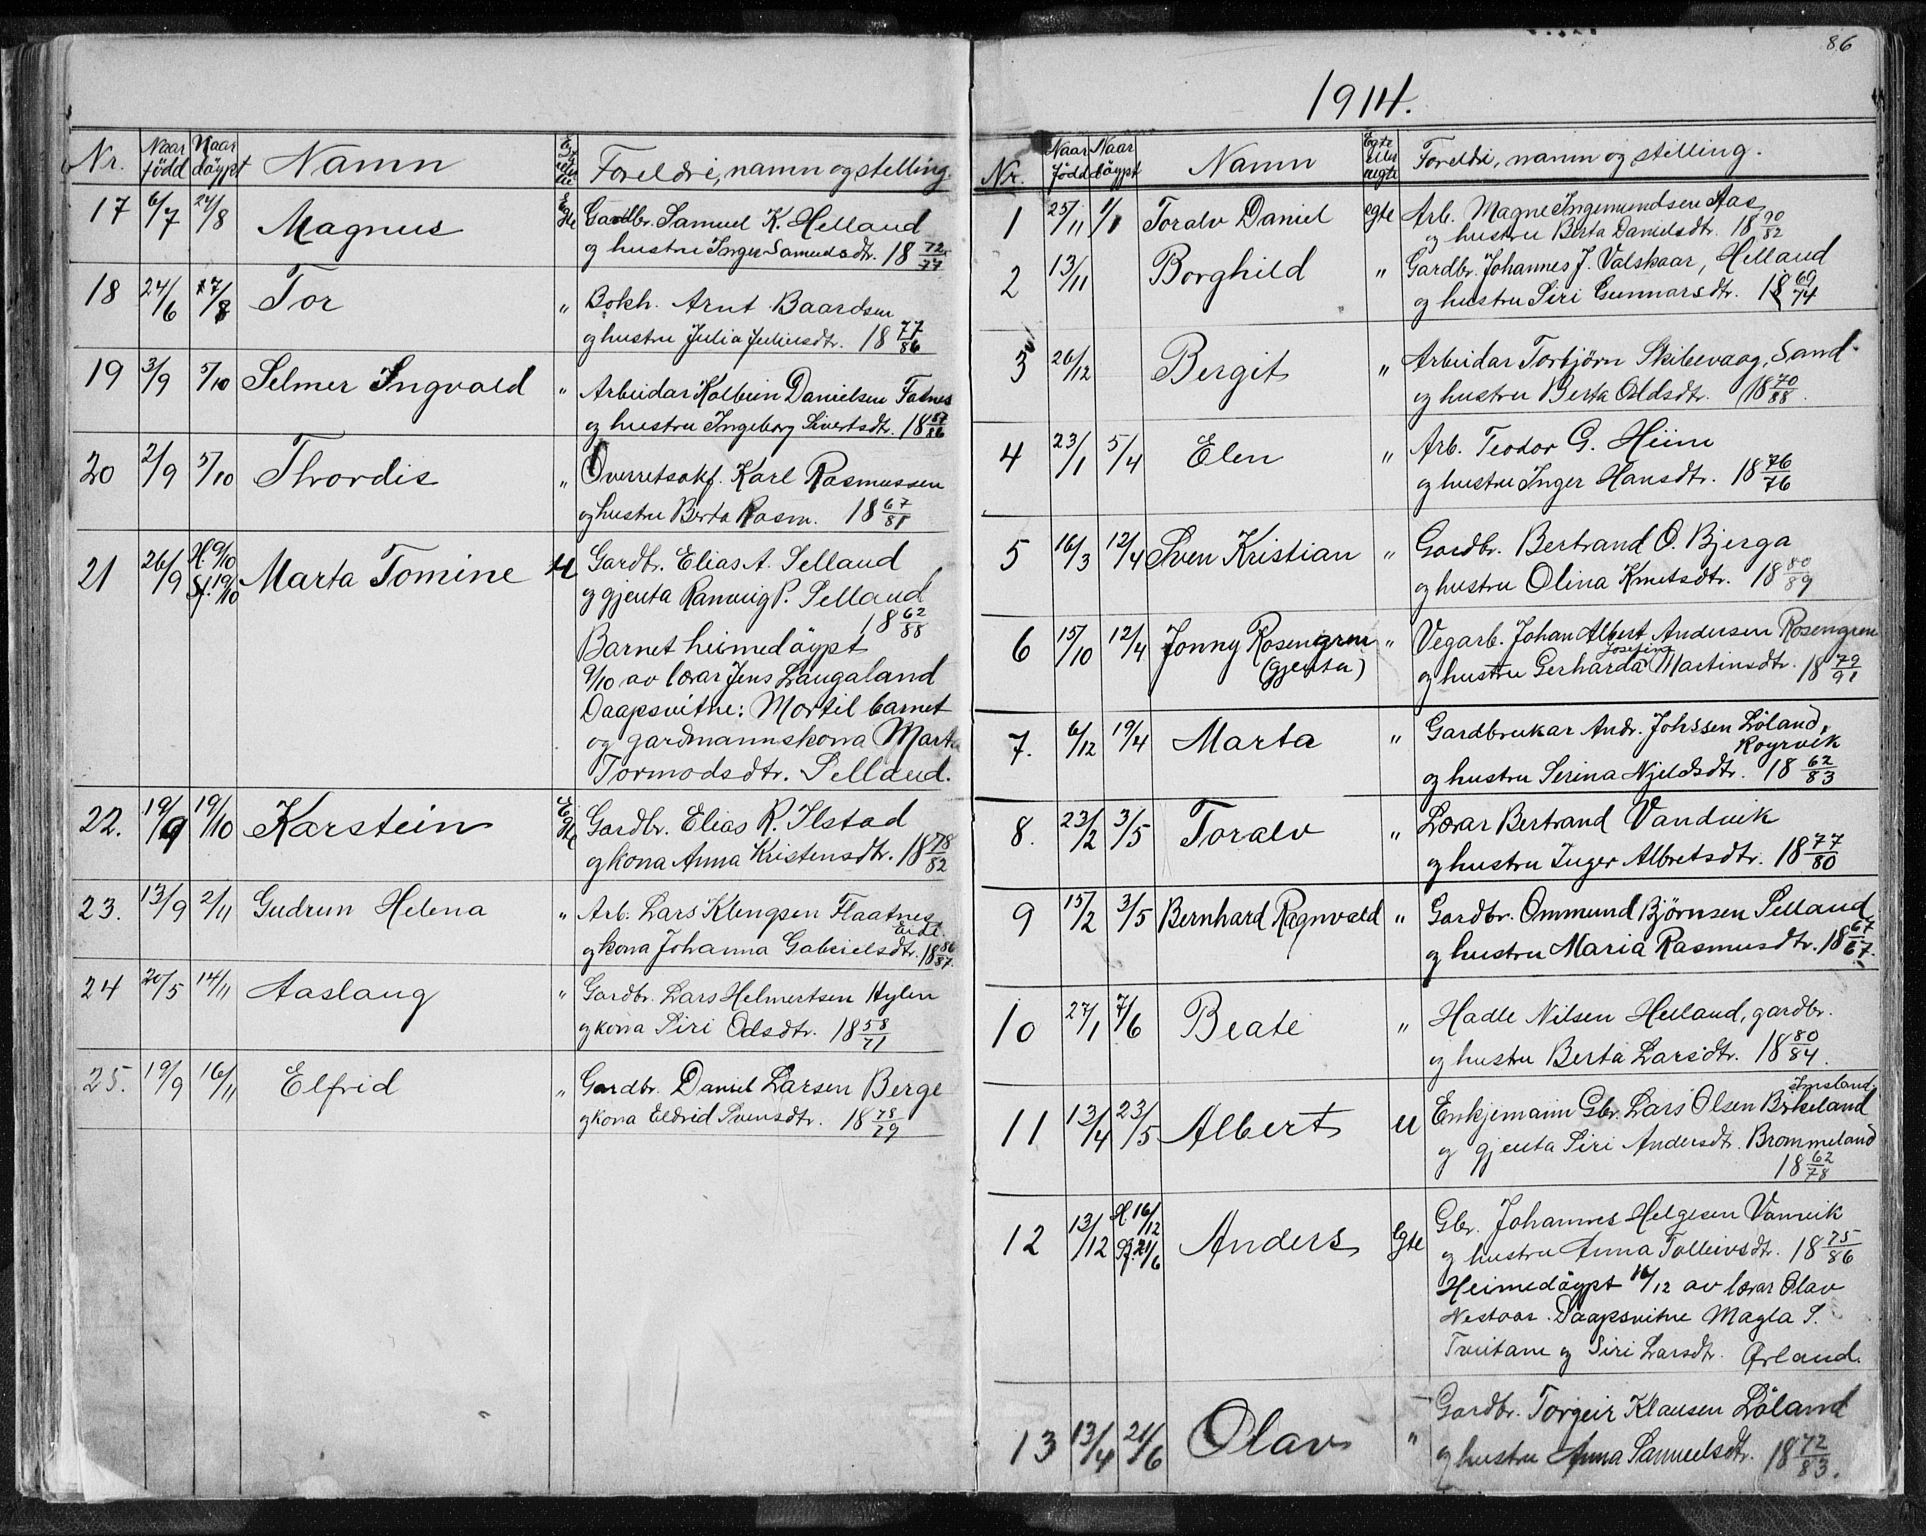 Nr. Naar född Naar döypt Namn Egte eller uegte Foreldri, namn og stilling.
17 6/7 24/8 Magnus Egte Gardbr. Samuel K. Helland
og hustru Inger Samuelsdtr. 18 72/77
18 24/6 17/8 Tor " Bokh. Arnt Baardsen
og hustru Julia Juliusdtr. 18 77/86
19 3/9 5/10 Selmer Ingvald " Arbeidar Kolbein Danielsen Fatnes
og hustru Ingeborg Sivertsdtr. 18 87/86
20 2/9 5/10 Thordis " Overretsakf. Karl Rasmussen
og hustru Berta Rasm. 18 67/81
21 26/9 H. 9/10 St. 19/10 Marta Tomine U Gardbr. Elias A. Selland
og gjenta Ranveig P. Selland
18 62/88
Barnet heimedöypt
9/10 av lærar Jens Laugaland
Daapsvitne: Mor til barnet
og gardmannskona Marta
Tormodsdtr. Selland.
22. 19/9 19/10 Karstein Egte Gardbr. Elias R. Ilstad
og kona Anna Kristensdtr. 18 78/82
23. 13/9 2/11 Gudrun Helena " Arb. Lars Klengsen Flaatnes
Eide
og kona Johanna Gabrielsdtr. 18 86/87.
24 20/5 14/11 Aaslaug " Gardbr. Lars Helmertsen Hylen
og kona Siri Odsdtr. 18 58/71
25. 19/9 16/11 Elfrid " Gardbr. Daniel Larsen Berge
og kona Eldrid Svensdtr. 18 78/79
86
1914.
Nr. Naar född Naar döypt Namn Egte eller uegte Foreldri, namn og stilling.
1 25/11 1/1 Toralv Daniel egte Arb. Magne Ingemundsen Aas
og hustru Berta Danielsdtr. 18 90/82
2 13/11 Borghild " Gardbr. Johannes J. Valskaar, Helland
og hustru Siri Gunnarsdtr. 18 69/74
3 26/12 Bergit " Arbeidar Torbjörn Skibevaag, Sand
og hustru Berta Oldsdtr. 18 70/88.
4 23/1 5/4 Elen " Arb. Teodor G. Heim
og hustru Inger Hansdtr. 18 76/76
5 16/3 12/4 Sven Kristian " Gardbr. Bertrand O. Bjerga
og hustru Olina Knutsdtr. 18 80/89
6 15/10 12/4 Jonny Rosengren " Vegarb. Johan Albert Andersen Rosengren
(gjenta) Josefine
og hustru Gerharda Martinsdtr. 18 79/91
7. 6/12 19/4 Marta " Gardbrukar Andr. Johssen Löland,
Royrvik
og hustru Serina Njeldsdtr. 18 62/83
8. 23/2 3/5 Toralv " Lærar Bertrand Vandvik
og hustru Inger Albretsdtr. 18 77/80
9 15/2 3/5 Bernhard Ragnvald " Gardbr. Ommund Björnsen Selland
og hustru Maria Rasmusdtr. 18 67/67.
10 27/1 7/6 Beate " Hadle Nilsen Helland, gardbr.
og hustru Berta Larsdtr. 18 80/84.
Imsland
11 13/4 23/5 Albert U Enkjemann Gbr. Lars Olsen Birkeland
og gjenta Siri Andersdtr. Brommeland
18 62/78
12 13/12 H 16/12 St. 21/6 Anders Egte Gbr. Johannes Helgesen Vanvik
og hustru Anna Tolleivsdtr. 18 75/86
Heimedöypt 16/12 av lærar Olav
Nestaas. Daapsvitne Magla S.
Tveitane og Siri Larsdtr. Ørland.
13 13/4 21/6 Olav " Gardbr. Torgeir Klausen Löland
og hustru Anna Samuelsdtr. 18 72/83.